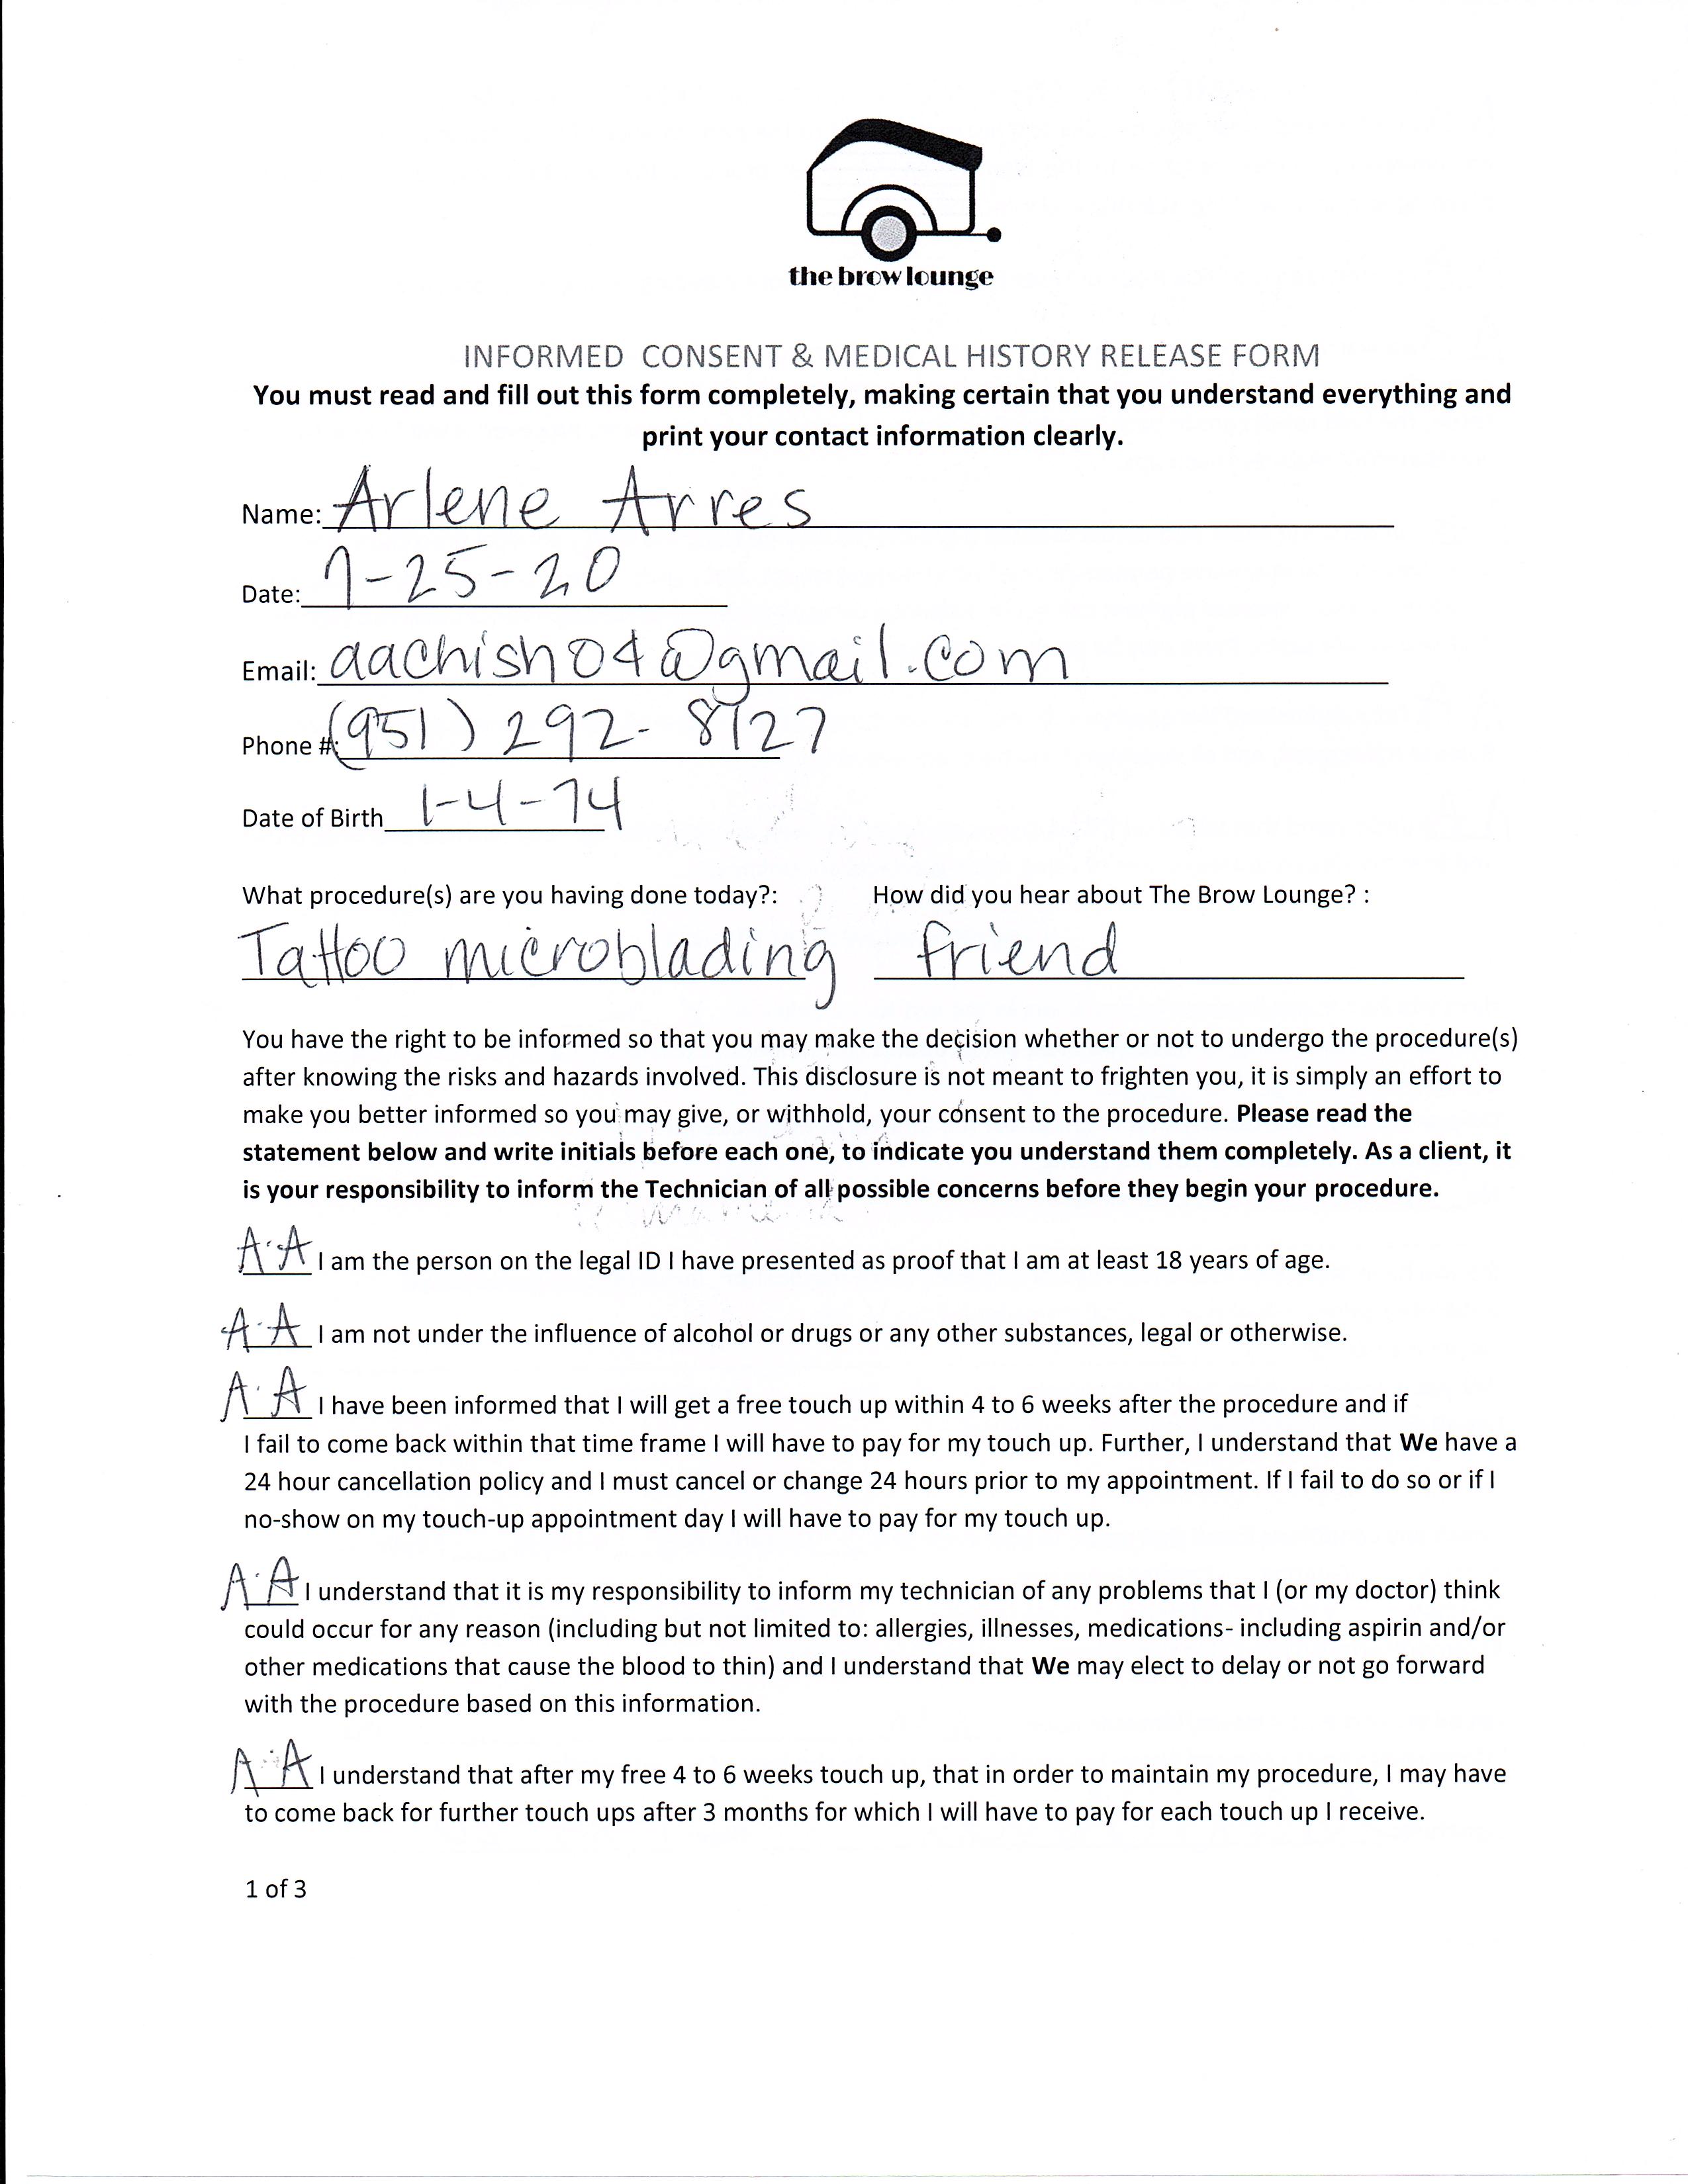 the brow lounge
INFORMED CONSENT & MEDICAL HISTORY RELEASE FORM
You must read and fill out this form completely, making certain that you understand everything and
print your contact information clearly.
Name: Arlene Arres
Date: 7-25-20
Email: aachish04@gmail.com
Phone #: (951) 292-8127
Date of Birth 1-4-74
What procedure(s) are you having done today?: How did you hear about The Brow Lounge? :
Tattoo microblading friend
You have the right to be informed so that you may make the decision whether or not to undergo the procedure(s)
after knowing the risks and hazards involved. This disclosure is not meant to frighten you, it is simply an effort to
make you better informed so you may give, or withhold, your consent to the procedure. Please read the
statement below and write initials before each one, to indicate you understand them completely. As a client, it
is your responsibility to inform the Technician of all possible concerns before they begin your procedure.
A.A I am the person on the legal ID I have presented as proof that I am at least 18 years of age.
A.A I am not under the influence of alcohol or drugs or any other substances, legal or otherwise.
A.A I have been informed that I will get a free touch up within 4 to 6 weeks after the procedure and if
I fail to come back within that time frame I will have to pay for my touch up. Further, I understand that We have a
24 hour cancellation policy and I must cancel or change 24 hours prior to my appointment. If I fail to do so or if I
no-show on my touch-up appointment day I will have to pay for my touch up.
A.A I understand that it is my responsibility to inform my technician of any problems that I (or my doctor) think
could occur for any reason (including but not limited to: allergies, illnesses, medications- including aspirin and/or
other medications that cause the blood to thin) and I understand that We may elect to delay or not go forward
with the procedure based on this information.
A.A I understand that after my free 4 to 6 weeks touch up, that in order to maintain my procedure, I may have
to come back for further touch ups after 3 months for which I will have to pay for each touch up I receive.
1 of 3